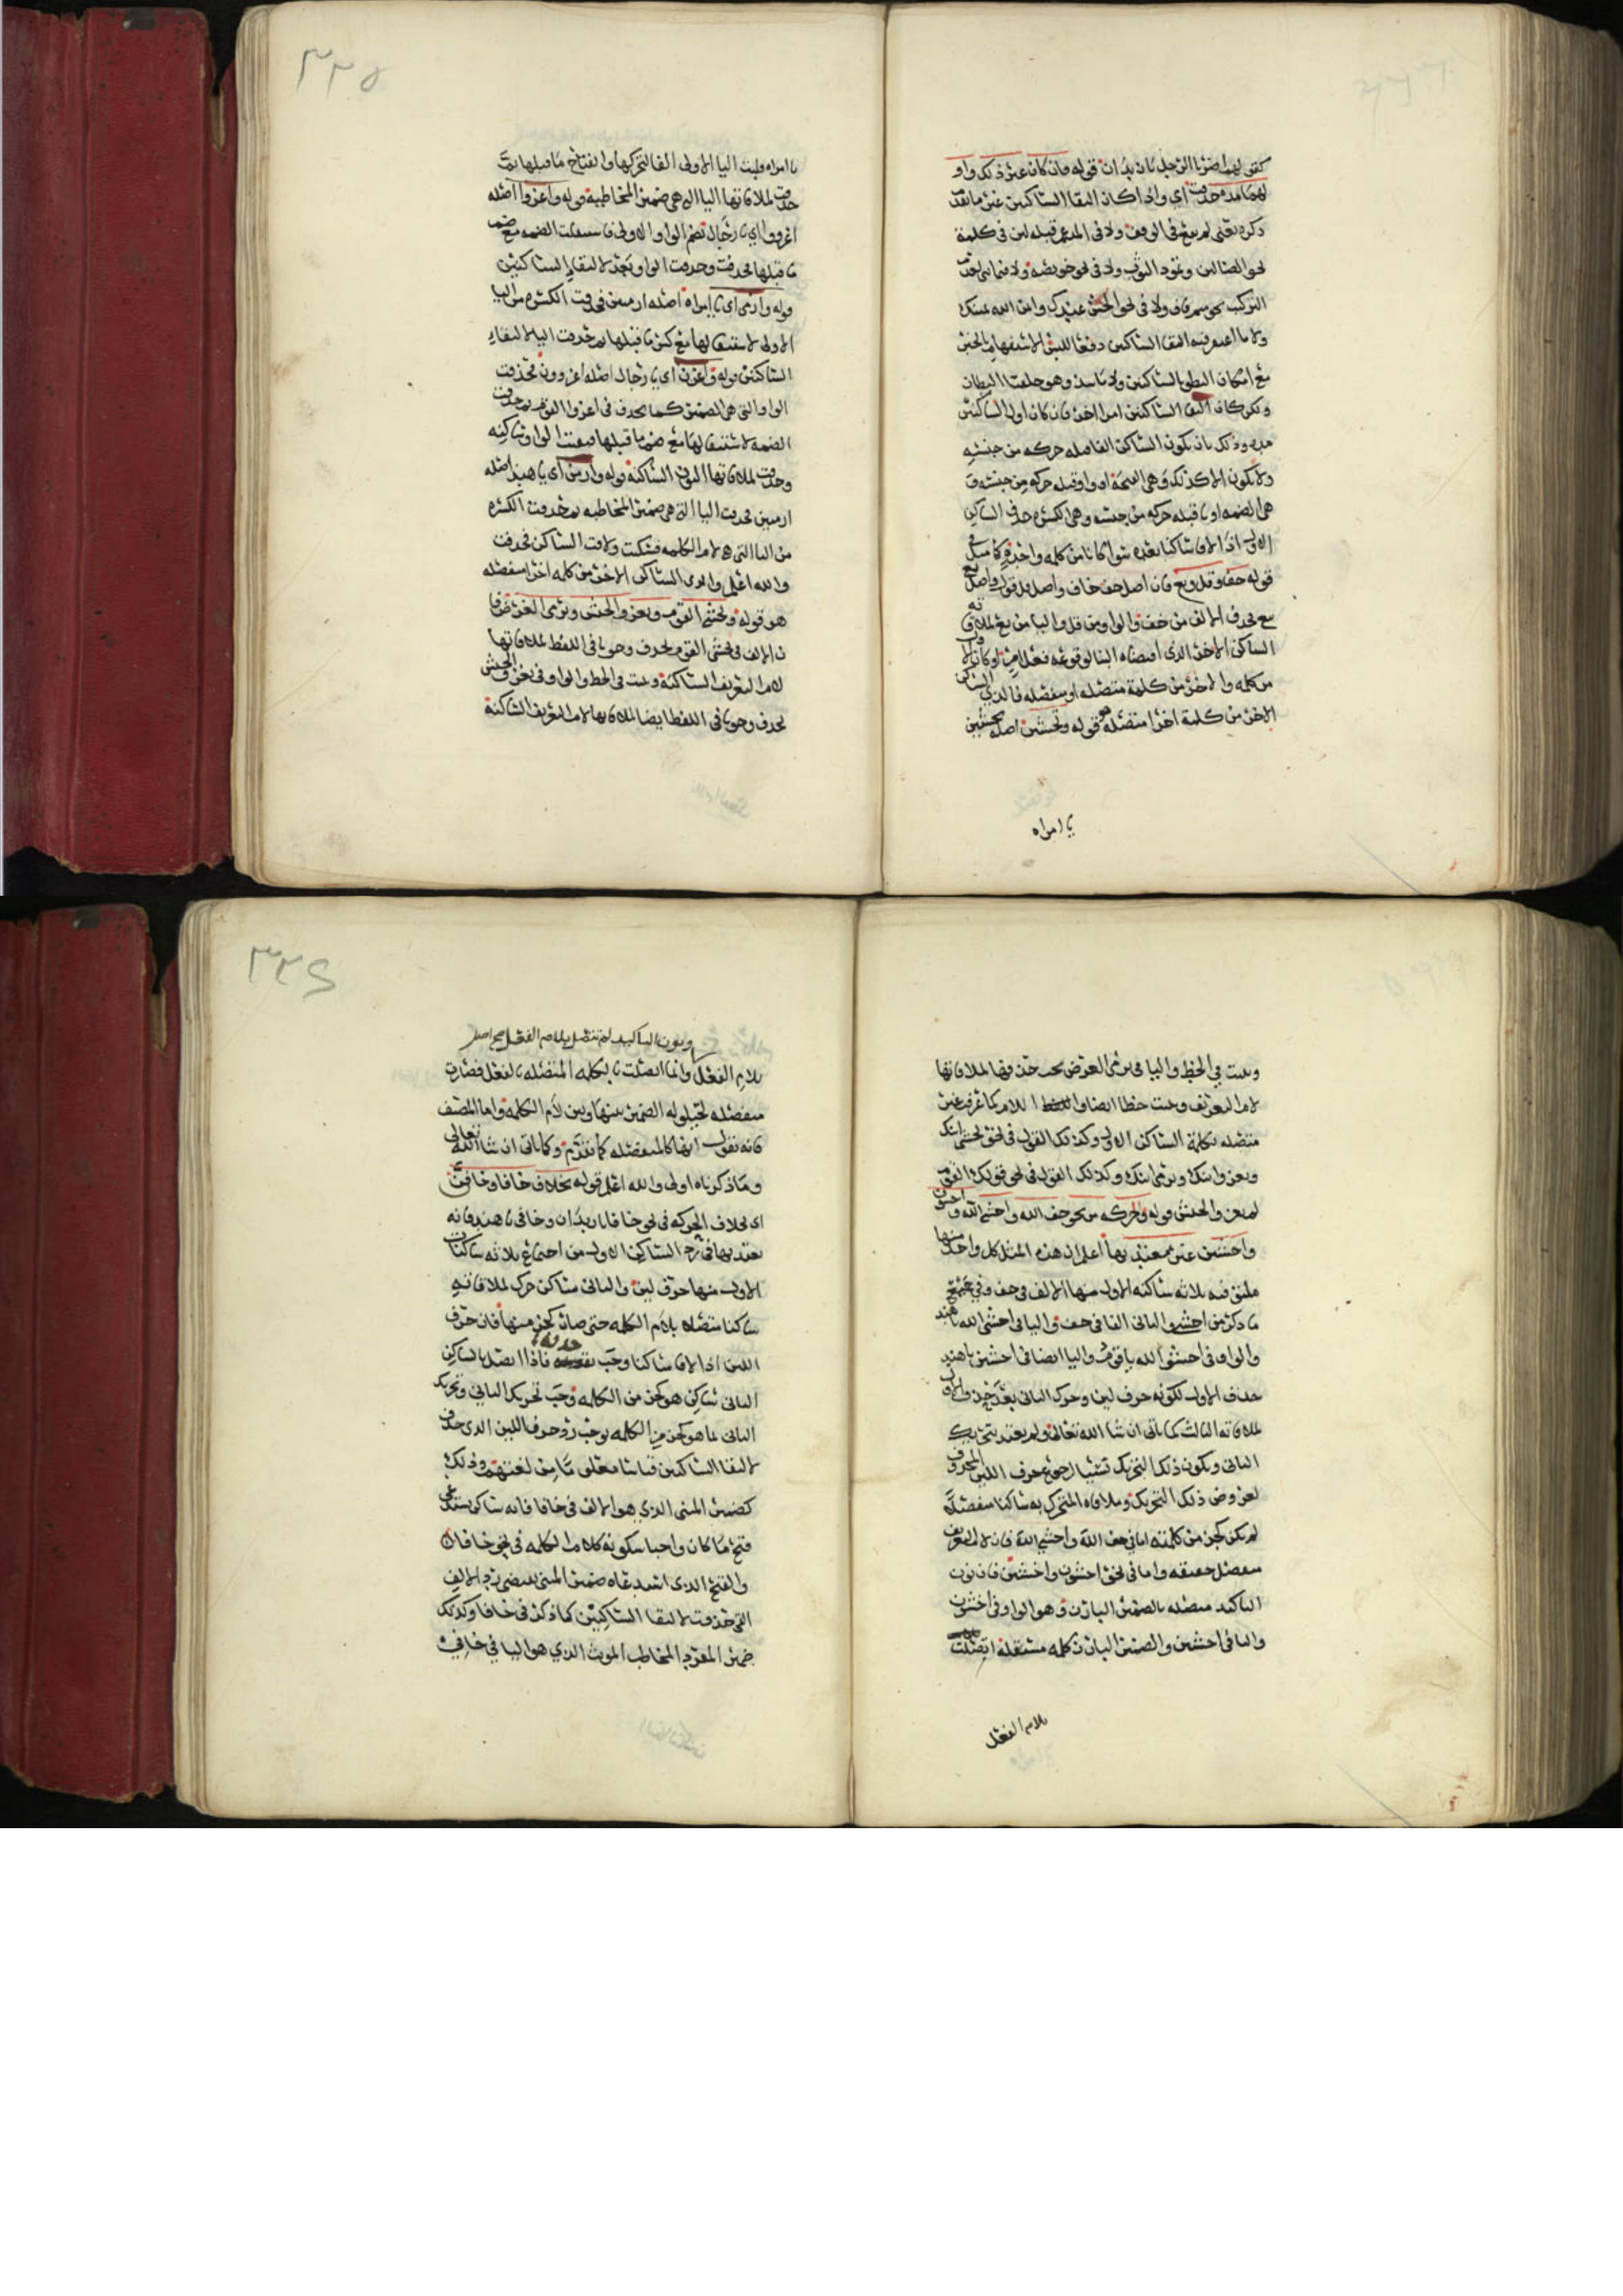 كقولهم اضربا الرجل يا زيدان قوله فان كان غير ذلك واو
لهما مده حذفت اي واذا كان التقا الساكنين غير ما تقدم
ذكره يعني لم يقع في الوقف ولا في المدغم قبله لين في كلمة
نحو الضالين وتمود الثوب ولا في نحو خويصة ولا فيما بني لعدم
التركيب نحو ميم قاف ولا في نحو الحسن عندك وايمن الله يمينك
ولا ما اغتفر فيه التقا الساكنين دفعا للبس الاستفهام بالخبر
مع امكان النطق بالساكنين ولا ما شذ وهو حلقتا البطان
ولكن كان التقا الساكنين امرا اخر فان كان اول الساكنين
مده وذلك بان يكون الساكن الفا قبله حركه من جنسه
ولا يكون الا كذلك وهي الفتحة او واوا قبله حركه من جنسه و
هي الضمه او يا قبله حركه من جنسه وهي الكسره حذف الساكن
الاول اذا لاقا ساكنا بعده سوا كانا من كلمه واحدة كما مثل في
قوله خف وقل وبع فان اصل خف خاف واصل قل قول واصل
بع بيع فحذف الالف من خف والواو من قل واليا من بع لملاقاته
الساكن الاخر الذي اقتضاه البنا لوقوعه فعل امر او كان الاول
من كلمه والاخر من كلمة متصله او منفصله فالذي الساكن
الاخر من كلمة اخرا متصله هو قوله وتخشين اصله تخشيين
يا امراه
٣٣٥
يا امراه قلبت اليا الاولى الفا لتحركها وانفتاح ما قبلها ثم
حذفت لملاقاتها اليا التي هي ضمير المخاطبة قوله واغزوا اصله
اغزووا اي يا رجال بضم الواو الاولى فاستثقلت الضمه مع ضم
ما قبلها فحذفت وحذفت الواو بعد لالتقا الساكنين
قوله وارمي اي يا امراه اصله ارميي فحذفت الكسره من اليا
الاولى لاستثقالها مع كسر ما قبلها ثم حذفت اليا لالتقاء
الساكنين قوله واغزن اي يا رجال اصله اغزوون فحذفت
الواو التي هي الضمير كما يحذف في اغزوا القوم ثم حذفت
الضمه لاستثقالها مع ضم ما قبلها فبقيت الواو ساكنه
وحذفت لملاقاتها النون الساكنة قوله وارمن اي يا هند اصله
ارميين فحذفت اليا التي هي ضمير المخاطبه ثم حذفت الكسره
من اليا التي هي لام الكلمه فسكنت ولاقت الساكن فحذفت
والله اعلم والذي الساكن الاخر من كلمه اخرا منفصله
هو قوله ويخشى القوم ويغزو الجيش ويرمي الغرض فا
ن الالف في يخشى القوم يحذف وجوبا في اللفظ لملاقاتها
لام التعريف الساكنة وثبتت في الخط والواو في يغزو الجيش
تحذف وجوبا في اللفظ ايضا لملاقاتها لام التعريف الساكنة
وثبتت في الخط واليا في يرمي الغرض يجب حذفها لملاقاتها
لام التعريف وثبتت خطا ايضا واللام كما عرف غير
متصله بكلمة الساكن الاول وكذلك القول في نحو يخشى ابنك
ويغزو ابنك ويرمي ابنك وكذلك القول في نحو قولك القوم
لم يغزوا الجيش قوله والحركه من نحو خف الله واخشو الله واخشون
واخشين غير معتد بها اعلم ان هذه المثل كل واحد منها
ملتق فيه ثلاثه ساكنه الاول منها الالف في خف وفي جميع
ما ذكر من اخشو والثاني الفا في خف واليا في اخشي الله يا هند
والواو في اخشو الله يا قوم واليا ايضا في اخشين يا هند
حذف الاول لكونه حرف لين وحرك الثاني بعد حذف الاول
لملاقاته الثالث كما ياتي ان شا الله تعالى ولم يعتد بتحريك
الثاني ويكون ذلك التحريك سببا لرجوع حرف اللين المحذوف
لعروض ذلك التحريك وملاقاه المتحرك به ساكنا منفصلا
لم يكن كجز من كلمته اما في خف الله واخشي الله فان لام التعريف
منفصل حقيقه واما في نحو اخشون واخشين فان نون
التاكيد متصله بالضمير البارز وهو الواو في اخشون
واليا في اخشين والضمير البارز كلمه مستقلة اتصلت
بلام الفعل
٣٣٤
ونون التاكيد لم تتصل بلام الفعل صح اصل
بلام الفعل وانما اتصلت بالكلمه المتصله بالفعل فصارت
منفصله لحيلوله الضمير بينها وبين لام الكلمه واما المصنف
فانه يقول انها كالمنفصله كما تقدم وكما ياتي ان شا الله تعالى
وما ذكرناه اولى والله اعلم قوله بخلاف خافا وخافن
اي بخلاف الحركه في نحو خافا يا زيدان وخافي يا هند فانه
يعتد بها في رد الساكن الاول من اجتماع ثلاثه ساكنات
الاول منها حرف لين والثاني ساكن حرك لملاقاته
ساكنا متصلا بلام الكلمه حتى صار كجز منها فان حرف
اللين اذا لاقا ساكنا وجب حذفه فاذا اتصل بالساكن
الثاني ساكن هو كجز من الكلمه وجب تحريك الثاني وتحريك
الثاني لما هو كجز من الكلمه يوجب رد حرف اللين الذي حذف
لالتقا الساكنين قياسا وذلك
كضمير المثنى الذي هو الالف في خافا فانه ساكن يستدعي
فتح ما كان واجبا سكونه كلام الكلمه في نحو خافا
والفتح الذي استدعاه ضمير المثنى يقتضي رد الالف
التي حذفت لالتقا الساكنين كما ذكر في خافا وكذلك
ضمير المفرد المخاطب المونث الذي هو اليا في خافي